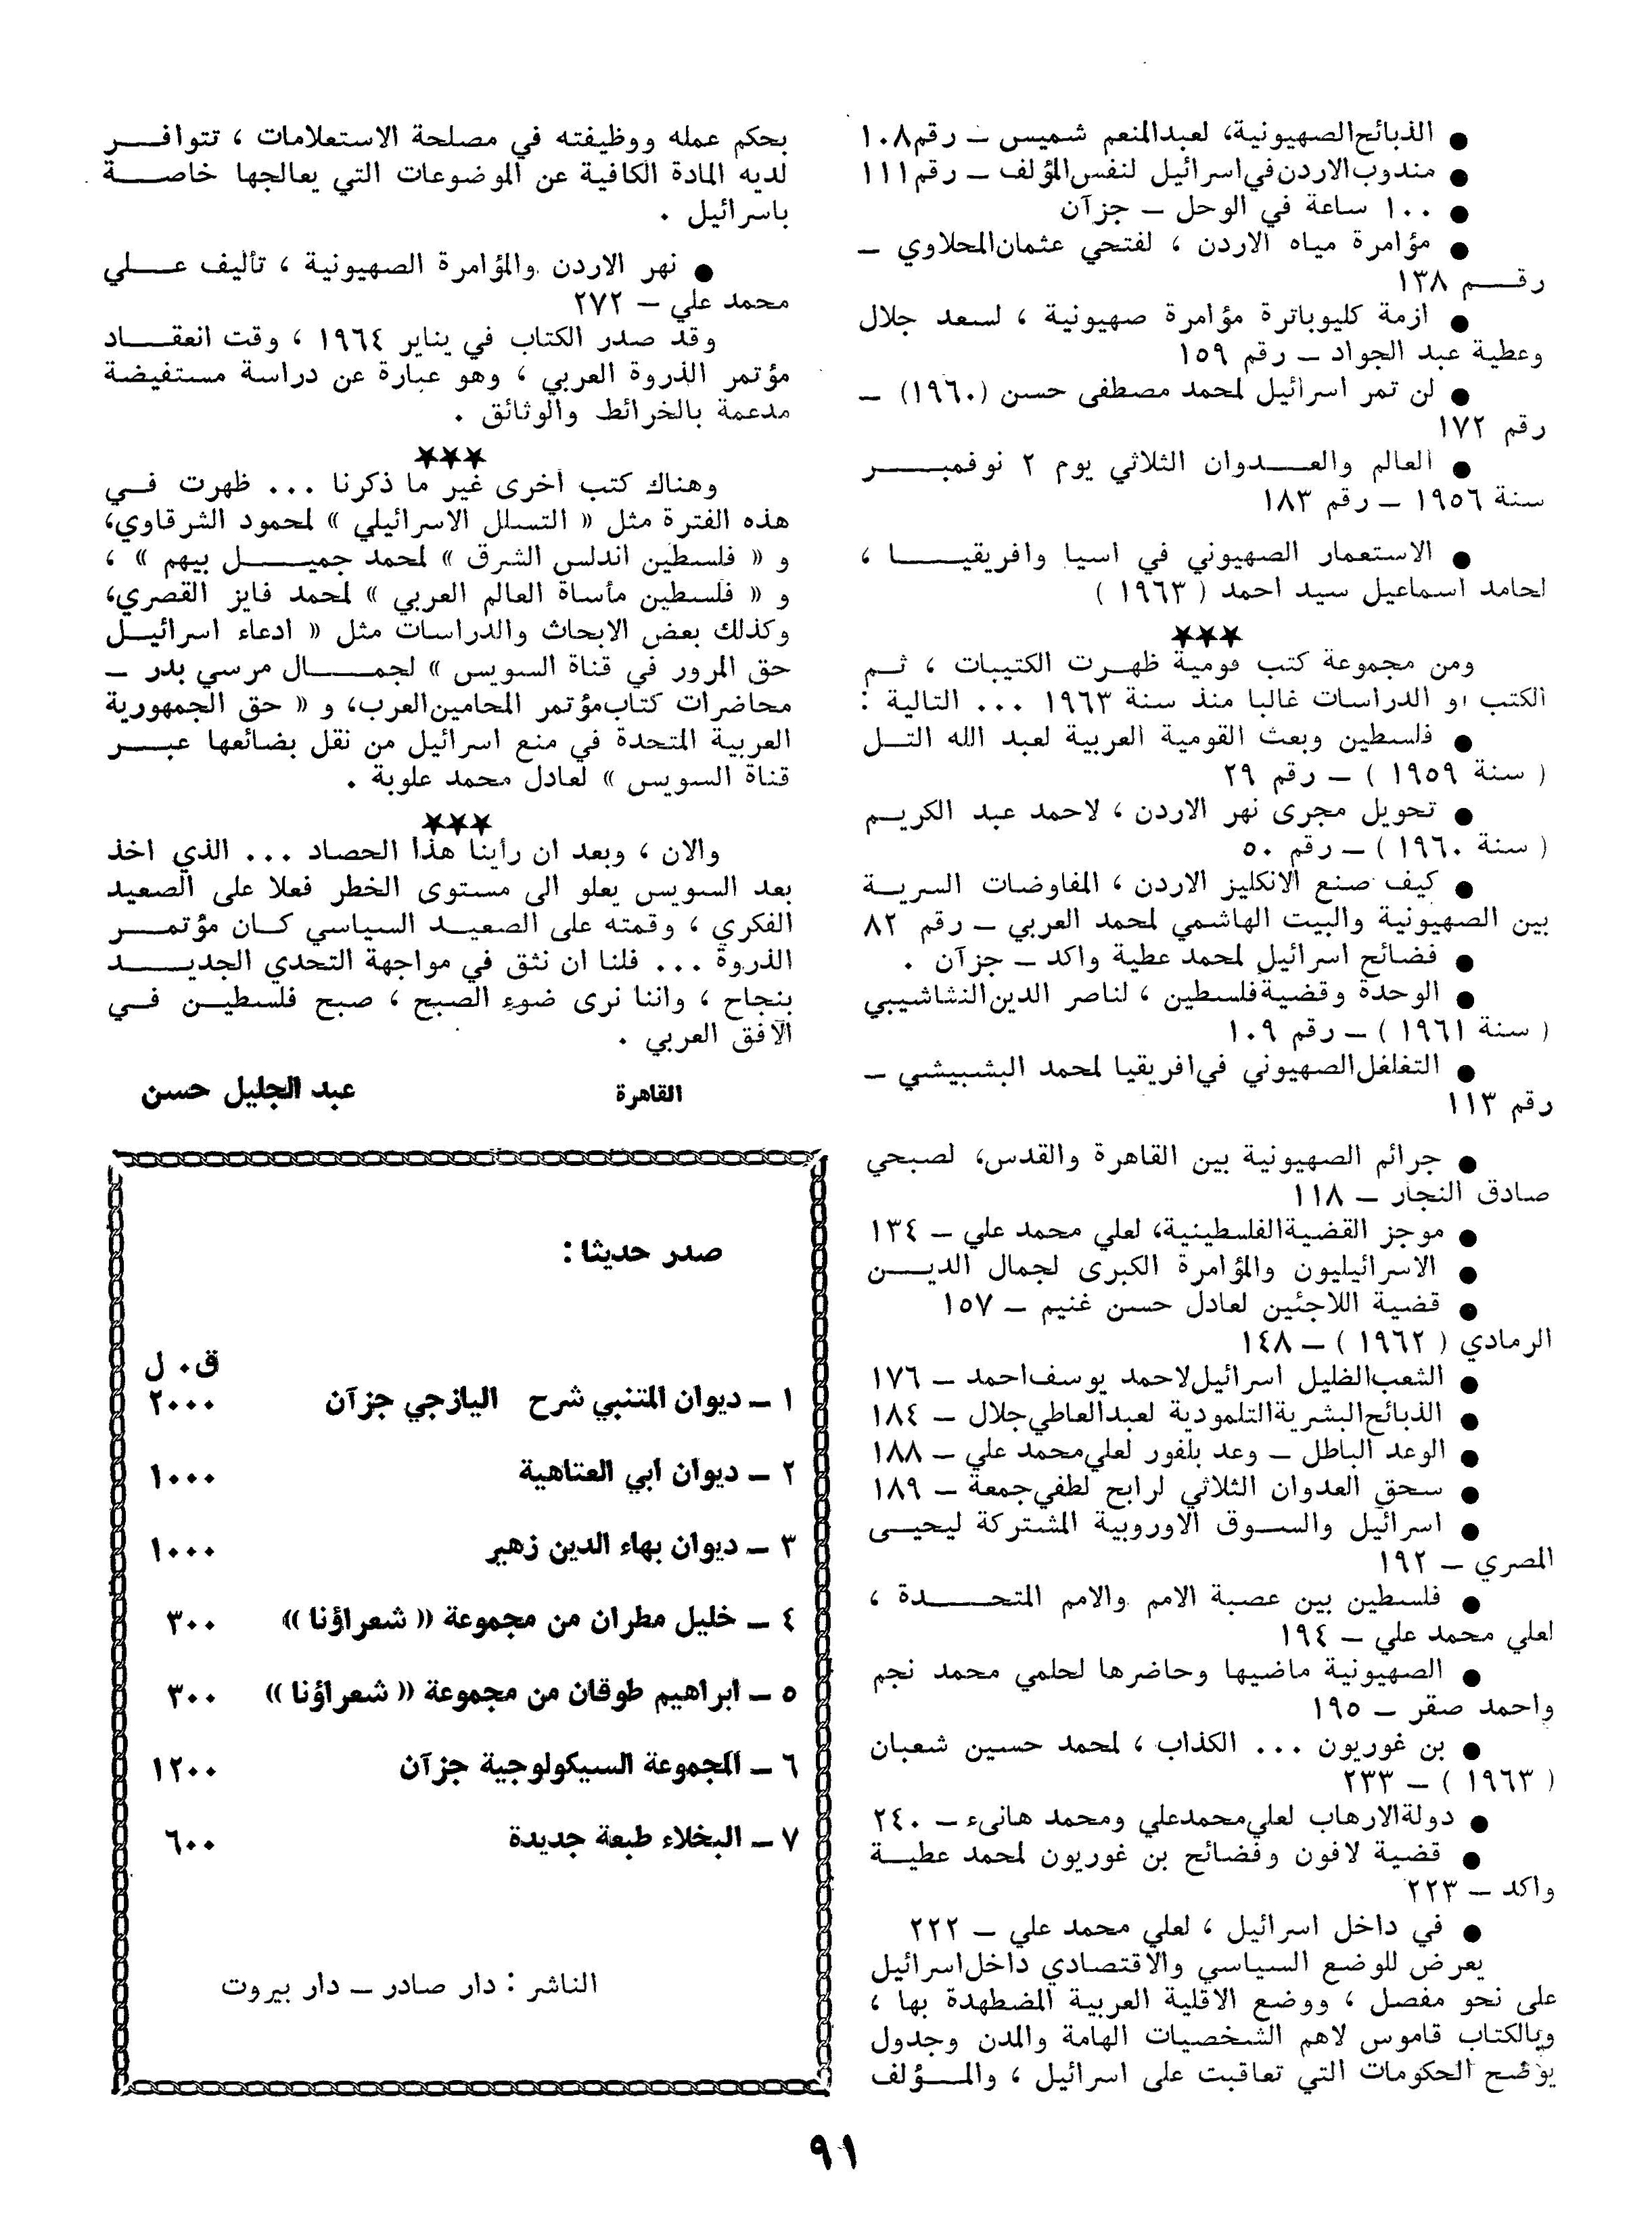 ● الذبائح الصهيونية، لعبدالمنعم شميس – رقم ١٠٨
● مندوب الاردن في اسرائيل لنفس المؤلف – رقم ١١١
● ١٠٠ ساعة في الوحل – جزآن
● مؤامرة مياه الاردن ، لفتحي عثمان المحلاوي –
رقـــم ١٣٨
● ازمة كليوباترة مؤامرة صهيونية ، لسعد جلال
وعطية عبد الجواد – رقم ١٥٩
● لن تمر اسرائيل لمحمد مصطفى حسن (١٩٦٠) –
رقم ١٧٢
● العالم والعـــدوان الثلاثي يوم ٢ نوفمبـــــر
سنة ١٩٥٦ – رقم ١٨٣
● الاستعمار الصهيوني في اسيا وافريقيـــــا ،
لحامد اسماعيل سيد احمد ( ١٩٦٣ )
★★★
ومن مجموعة كتب قومية ظهـرت الكتيبات ، ثـم
الكتب او الدراسات غالبا منذ سنة ١٩٦٣ ... التالية :
● فلسطين وبعث القومية العربية لعبد الله التـل
( سنة ١٩٥٩ ) – رقم ٢٩
● تحويل مجرى نهر الاردن ، لاحمد عبد الكريـم
( سنة ١٩٦٠ ) – رقم ٥٠
● كيف صنع الانكليز الاردن ، المفاوضات السريـة
بين الصهيونية والبيت الهاشمي لمحمد العربي – رقم ٨٢
● فضائح اسرائيل لمحمد عطية واكد – جزآن .
● الوحدة وقضية فلسطين ، لناصر الدين النشاشيبي
( سنة ١٩٦١ ) – رقم ١٠٩
● التغلغل الصهيوني في افريقيا لمحمد البشبيشي –
رقم ١١٣
● جرائم الصهيونية بين القاهرة والقدس، لصبحي
صادق النجار – ١١٨
● موجز القضية الفلسطينية، لعلي محمد علي – ١٣٤
● الاسرائيليون والمؤامرة الكبرى لجمال الديــن
● قضية اللاجئين لعادل حسن غنيم – ١٥٧
الرمادي ( ١٩٦٢ ) – ١٤٨
● الشعب الظليل اسرائيل لاحمد يوسف احمد – ١٧٦
● الذبائح البشرية التلمودية لعبد العاطي جلال – ١٨٤
● الوعد الباطل – وعد بلفور لعلي محمد علي – ١٨٨
● سحق العدوان الثلاثي لرابح لطفي جمعة – ١٨٩
● اسرائيل والســوق الاوروبية المشتركة ليحيــى
المصري – ١٩٢
● فلسطين بين عصبة الامم والامم المتحــــدة ،
لعلي محمد علي – ١٩٤
● الصهيونية ماضيها وحاضرها لحلمي محمد نجم
واحمد صقر – ١٩٥
● بن غوريون ... الكذاب ، لمحمد حسين شعبان
( ١٩٦٣ ) – ٢٣٣
● دولة الارهاب لعلي محمد علي ومحمد هانىء – ٢٤٠
● قضية لافون وفضائح بن غوريون لمحمد عطيـة
واكد – ٢٢٣
● في داخل اسرائيل ، لعلي محمد علي – ٢٢٢
يعرض للوضع السياسي والاقتصادي داخل اسرائيل
على نحو مفصل ، ووضع الاقلية العربية المضطهدة بها ،
وبالكتاب قاموس لاهم الشخصيات الهامة والمدن وجدول
يوضح الحكومات التي تعاقبت على اسرائيل ، والمــؤلف
بحكم عمله ووظيفته في مصلحة الاستعلامات ، تتوافــر
لديه المادة الكافية عن الموضوعات التي يعالجها خاصــة
باسرائيل .
● نهر الاردن والمؤامرة الصهيونية ، تأليف عـــلي
محمد علي – ٢٧٢
وقد صدر الكتاب في يناير ١٩٦٤ ، وقت انعقــاد
مؤتمر الذروة العربي ، وهو عبارة عن دراسة مستفيضة
مدعمة بالخرائط والوثائق .
★★★
وهناك كتب اخرى غير ما ذكرنا ... ظهرت فـي
هذه الفترة مثل « التسلل الاسرائيلي » لمحمود الشرقاوي،
و « فلسطين اندلس الشرق » لمحمد جميـــل بيهم » ،
و « فلسطين مأساة العالم العربي » لمحمد فايز القصري،
وكذلك بعض الابحاث والدراسات مثل « ادعاء اسرائيـل
حق المرور في قناة السويس » لجمـــال مرسي بدر –
محاضرات كتاب مؤتمر المحامين العرب، و « حق الجمهورية
العربية المتحدة في منع اسرائيل من نقل بضائعها عبــر
قناة السويس » لعادل محمد علوبة .
★★★
والان ، وبعد ان رأينا هذا الحصاد ... الذي اخذ
بعد السويس يعلو الى مستوى الخطر فعلا على الصعيد
الفكري ، وقمته على الصعيـد السياسي كـان مؤتمــر
الذروة ... فلنا ان نثق في مواجهة التحدي الجديــــد
بنجاح ، واننا نرى ضوء الصبح ، صبح فلسطيـن فـي
الآفق العربي .
القاهرة عبد الجليل حسن
صدر حديثا :
ق. ل
١ – ديوان المتنبي شرح اليازجي جزآن ٢٠٠٠
٢ – ديوان ابي العتاهية ١٠٠٠
٣ – ديوان بهاء الدين زهير ١٠٠٠
٤ – خليل مطران من مجموعة « شعراؤنا » ٣٠٠
٥ – ابراهيم طوقان من مجموعة « شعراؤنا » ٣٠٠
٦ – المجموعة السيكولوجية جزآن ١٢٠٠
٧ – البخلاء طبعة جديدة ٦٠٠
الناشر : دار صادر – دار بيروت
٩١